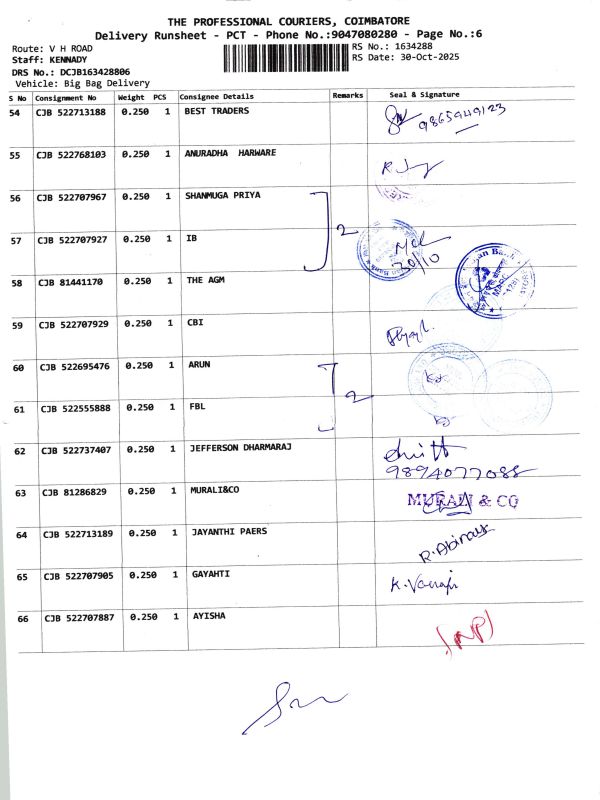 THE PROFESSIONAL COURIERS, COIMBATORE
Delivery Runsheet - PCT - Phone No.:9047080280 - Page No.:6
Route: V H ROAD
RS No.: 1634288
Staff: KENNADY
RS Date: 30-Oct-2025
DRS No.: DCJB163428806
Vehicle: Big Bag Delivery
S No Consignment No Weight PCS Consignee Details Remarks Seal & Signature
54 CJB 522713188 0.250 1 BEST TRADERS 9865949123
55 CJB 522768103 0.250 1 ANURADHA HARWARE
56 CJB 522707967 0.250 1 SHANMUGA PRIYA
2
57 CJB 522707927 0.250 1 IB 30/10
58 CJB 81441170 0.250 1 THE AGM
59 CJB 522707929 0.250 1 CBI
60 CJB 522695476 0.250 1 ARUN
2
61 CJB 522555888 0.250 1 FBL
62 CJB 522737407 0.250 1 JEFFERSON DHARMARAJ
9894077088
63 CJB 81286829 0.250 1 MURALI&CO MURALI & CO
64 CJB 522713189 0.250 1 JAYANTHI PAERS R.Abinaya
65 CJB 522707905 0.250 1 GAYAHTI
66 CJB 522707887 0.250 1 AYISHA